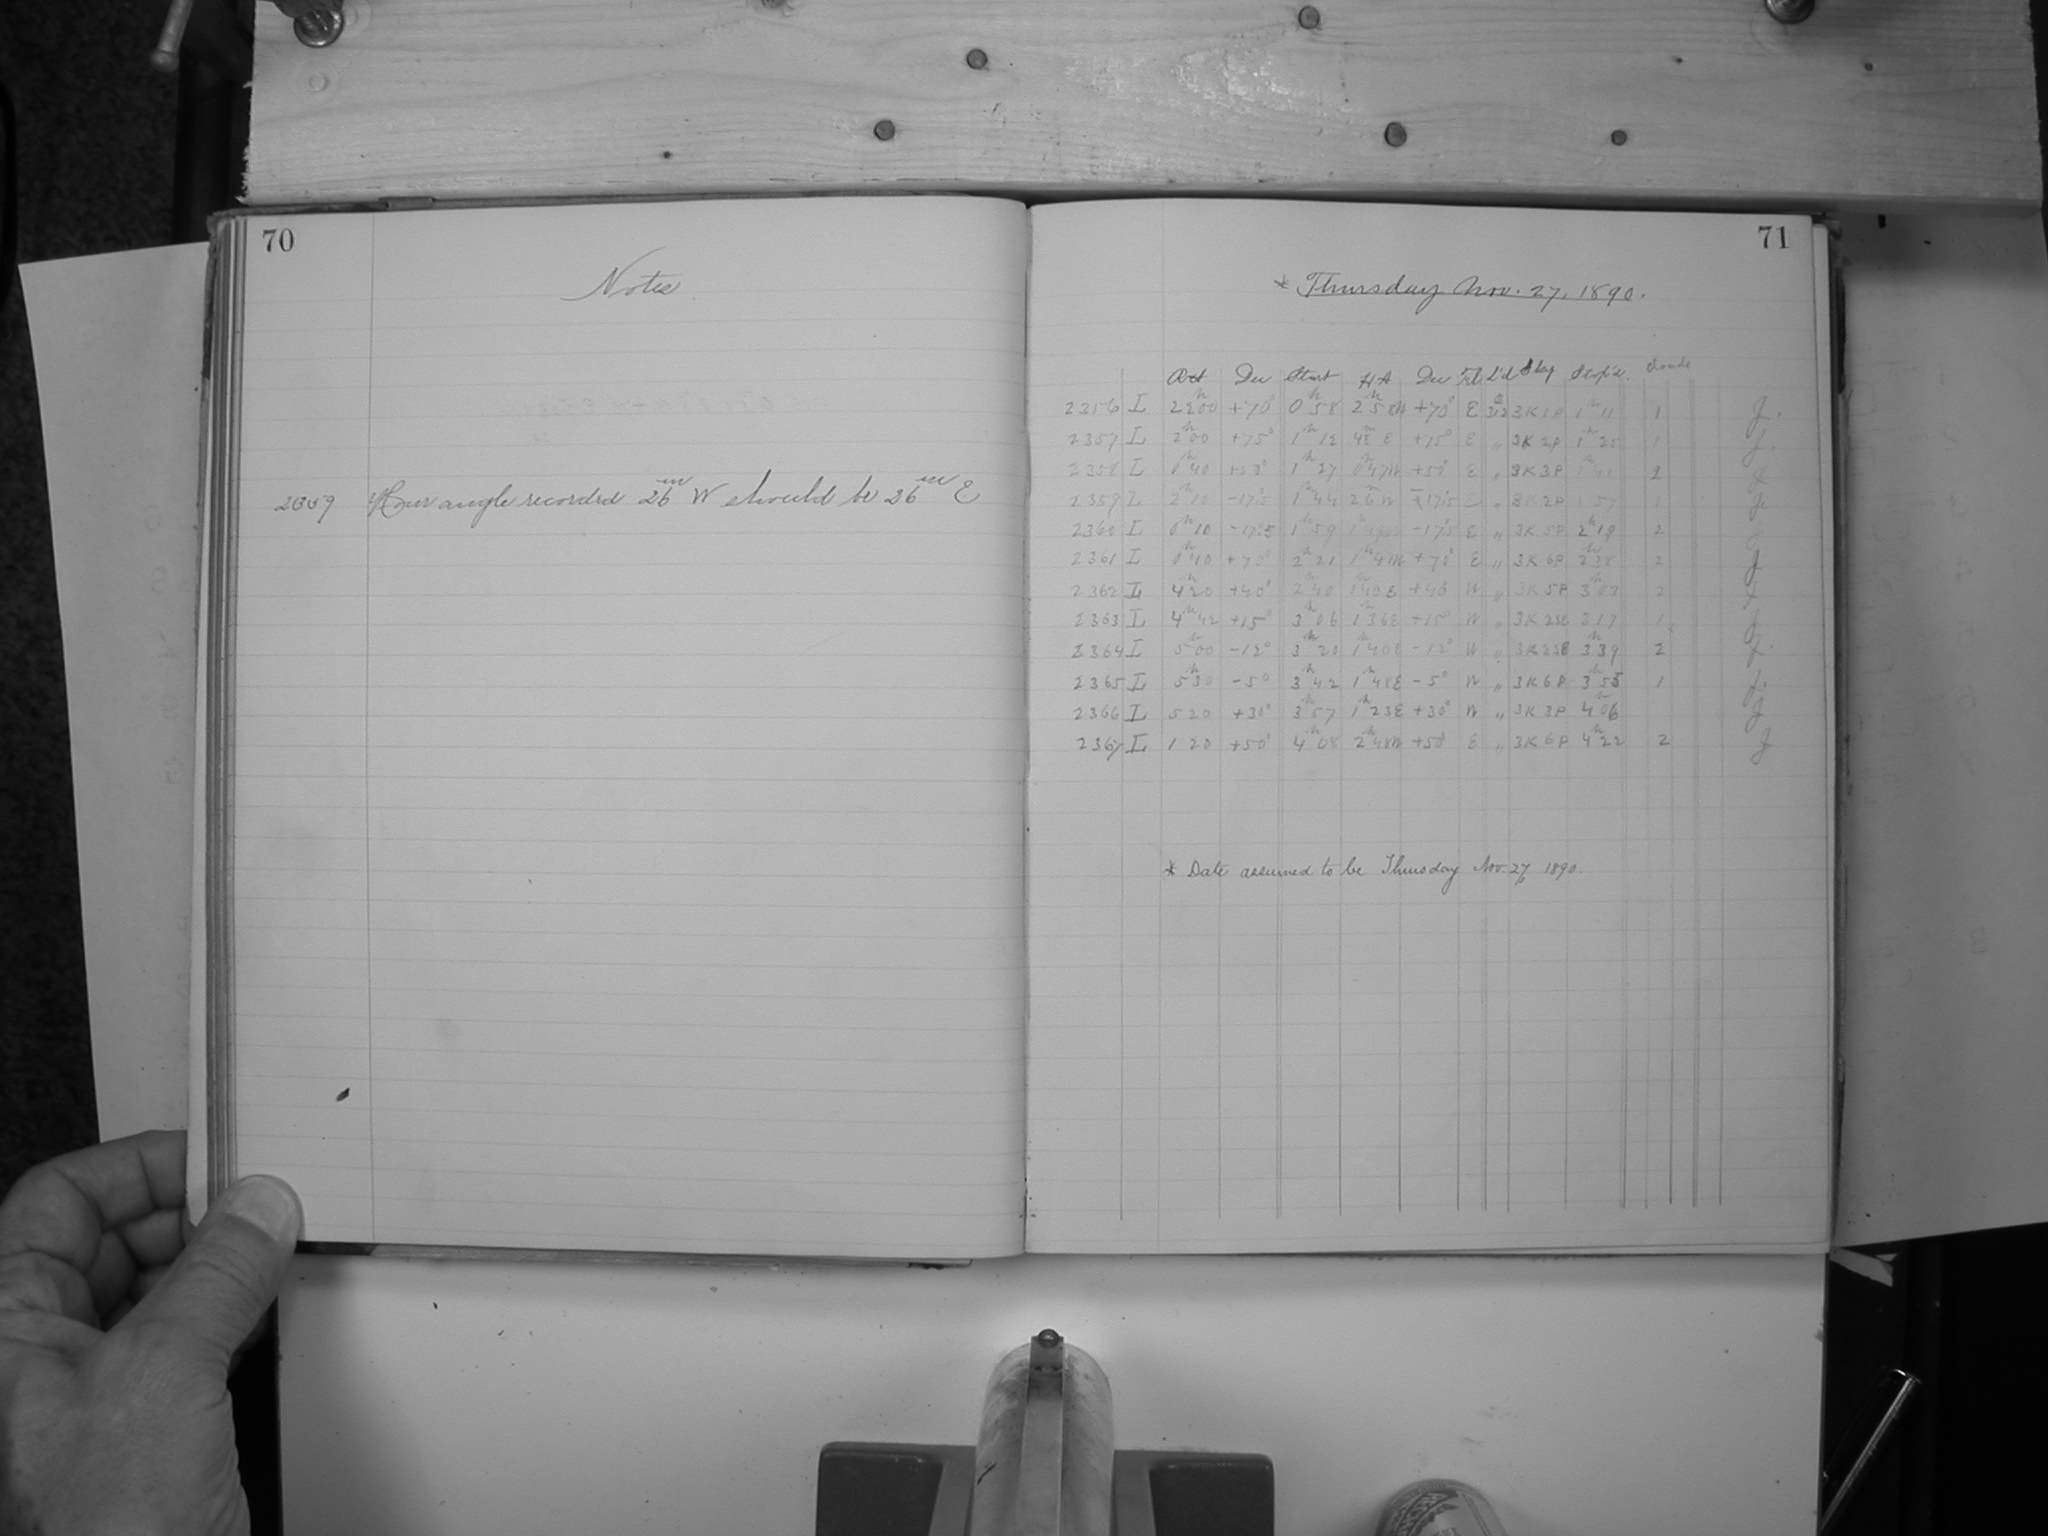 70
Notes
2359 Hour angle recorded 26m W should be 26m E
71
* Thursday Nov. 27, 1890.
Dec Start HA Dec
2356 L 22h00 +70° 0h58 2h58W +70° E 312 3K1P 1h11 1 J.
2357 L 2h00 +75° 1h12 48m E +75° E " 3K2P 1h25 1 J.
2358 L 0h40 +50° 1h27 0h47W +50° E " 3K3P 2 J
2359 L 2h10 -17.5 1h44 26m W 17.5 " 3K2P 1h57 1 J.
2360 L 0h10 -17.5 1h59 -17.5 E " 3K5P 2h19 2
2361 L 0h40 +70° 2h21 1h41W +70° E " 3K6P 2h38 2 J
2362 L 4h20 +40° 2h40 1h40E +40 W " 3K5P 2 J
2363 L 4h42 +15° 3h06 1h36E +15° W " 3K2SE 3 17 1 J
2364 L 5h00 -12° 3h20 1h40E -12° W " 3K2SE 3h39 2 J.
2365 L 5h30 -5° 3h42 1h48E -5° W " 3K6P 3h55 1 J.
2366 L 5 20 +30° 3h57 1h23E +30° W " 3K3P 4h06 J
2367 L 1 20 +50° 4h08 2h48W +50° E " 3K6P 4h22 2 J
* Date assumed to be Thursday Nov. 27, 1890.